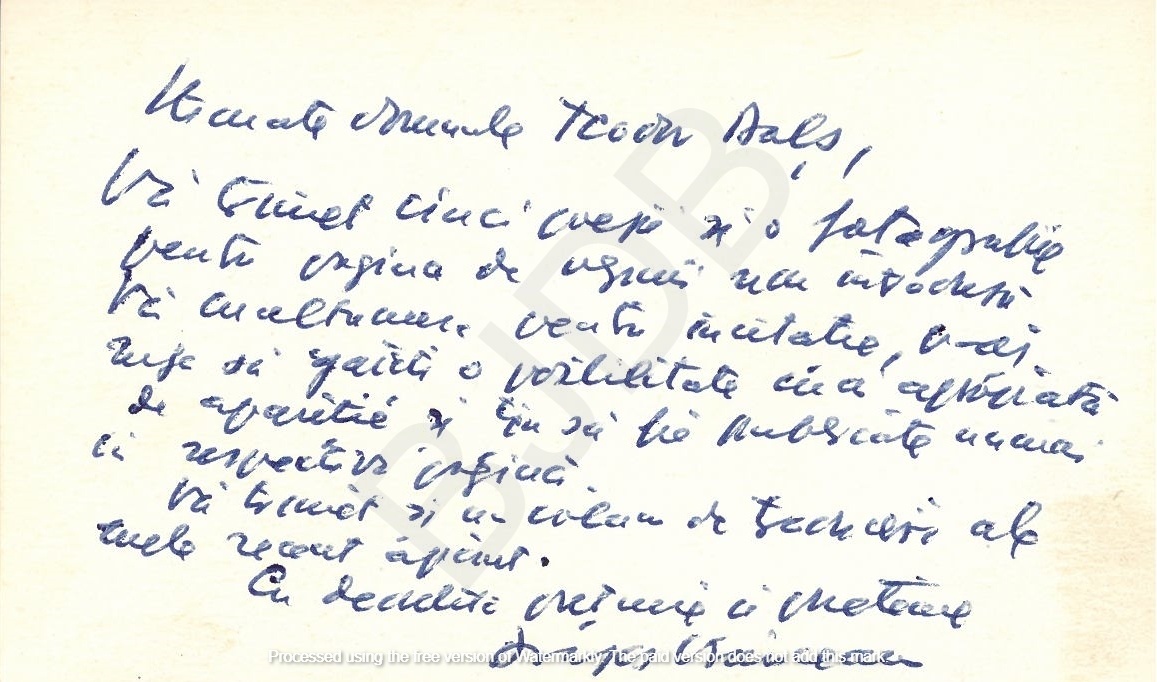 Stimate domnule Teodor Balș,
Vă trimet cinci poezii și o fotografie
pentru pagina de
Vă mulțumesc pentru invitație, v-aș
ruga să găsiți o posibilitate cât mai apropiată
de apariție și țin să fie publicate numai
în respectiva pagină.
Vă trimet și un volum de traduceri ale
mele recent apărut.
Cu deosebită prețuire și prietenie
Processed using the free version of Watermarkly. The paid version does not add this mark.
BJDB